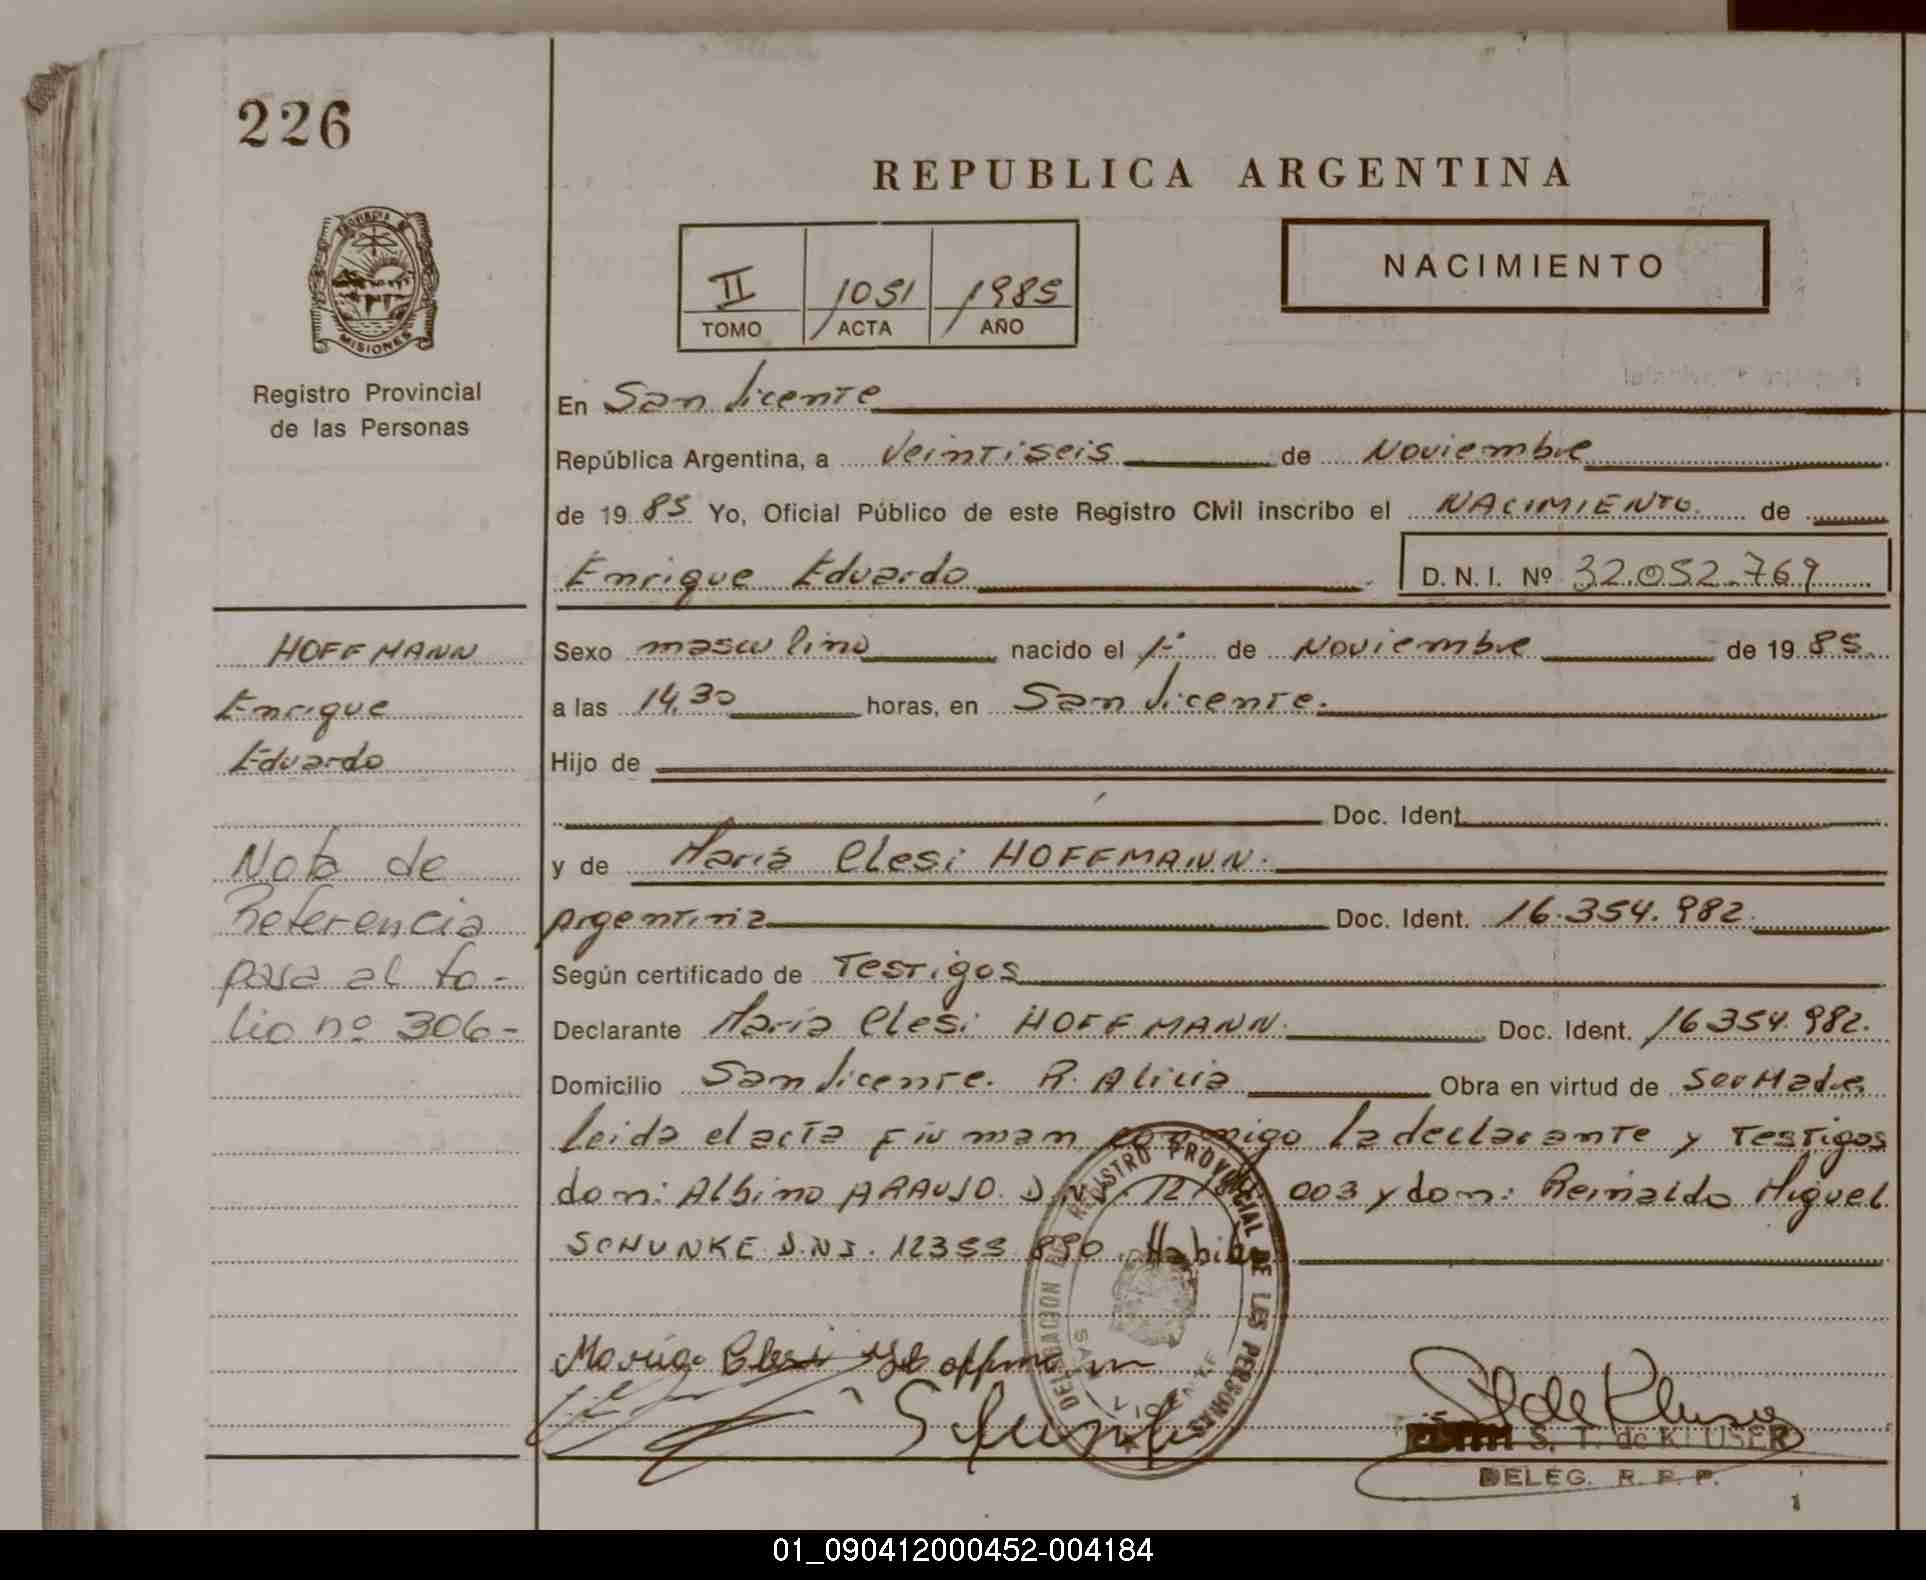 226
REPUBLICA ARGENTINA
NACIMIENTO
II 1051 1985
TOMO ACTA AÑO
MISIONES
Registro Provincial
de las Personas
En San Vicente
República Argentina, a Veintiseis de Noviembre
de 19 85 Yo, Oficial Público de este Registro Civil inscribo el NACIMIENTO de
Enrique Eduardo D.N.I. Nº 32.052.769
HOFFMANN
Enrique
Eduardo
Nota de
Referencia
pasa al fo-
lio nº 306-
Sexo masculino nacido el 1º de Noviembre de 19 85
a las 14,30 horas, en San Vicente.
Hijo de
Doc. Ident.
y de Maria Clesi HOFFMANN.
Argentina Doc. Ident. 16.354.982.
Según certificado de Testigos
Declarante Maria Clesi HOFFMANN. Doc. Ident. 16354.982.
Domicilio San Vicente. P. Alicia Obra en virtud de ser Madre
leida el acta firman conmigo la declarante y Testigos
don: Albino ARAUJO D.N.I. 12 003 y don: Reinaldo Miguel
SCHUNKE D.N.I. 12355 890
REGISTRO PROVINCIAL DE LES PERSONAS
DELEGACION
SAN VICENTE
Maria Clesi Hoffmann
Schunke
S. T. de KLUSER
DELEG. R. P. P.
1
01_090412000452-004184